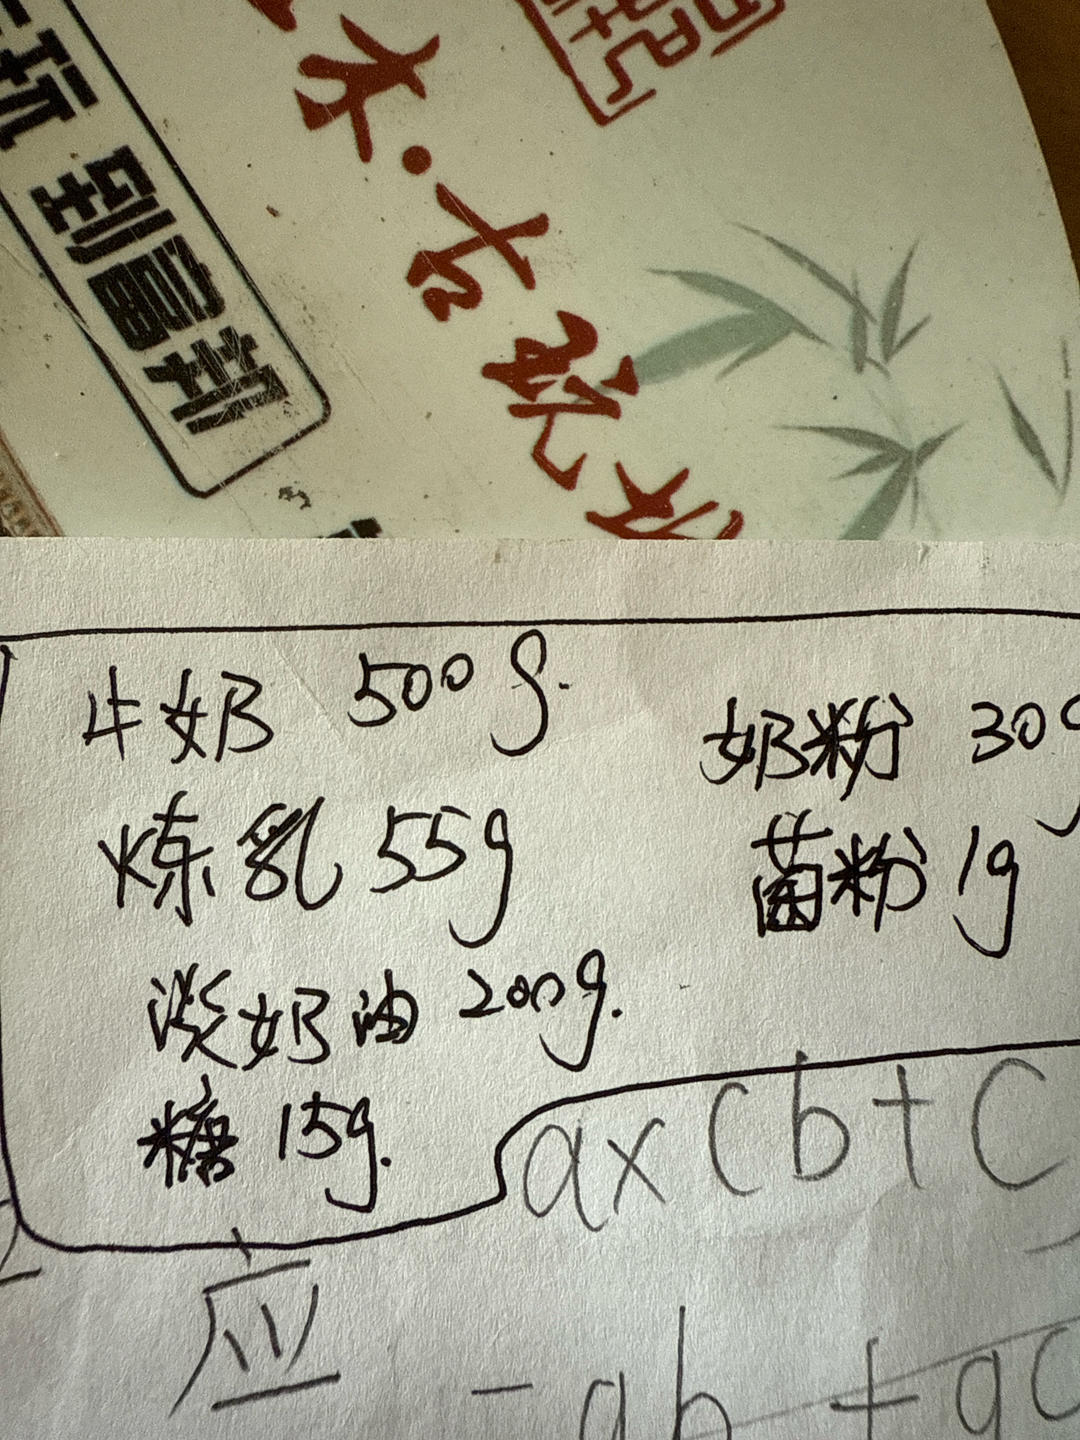 到富邦
水·古
牛奶 500g.
奶粉 30g
炼乳 55g
菌粉 1g
淡奶油 200g.
糖 15g.
ax(b+c
应
=ab+ac